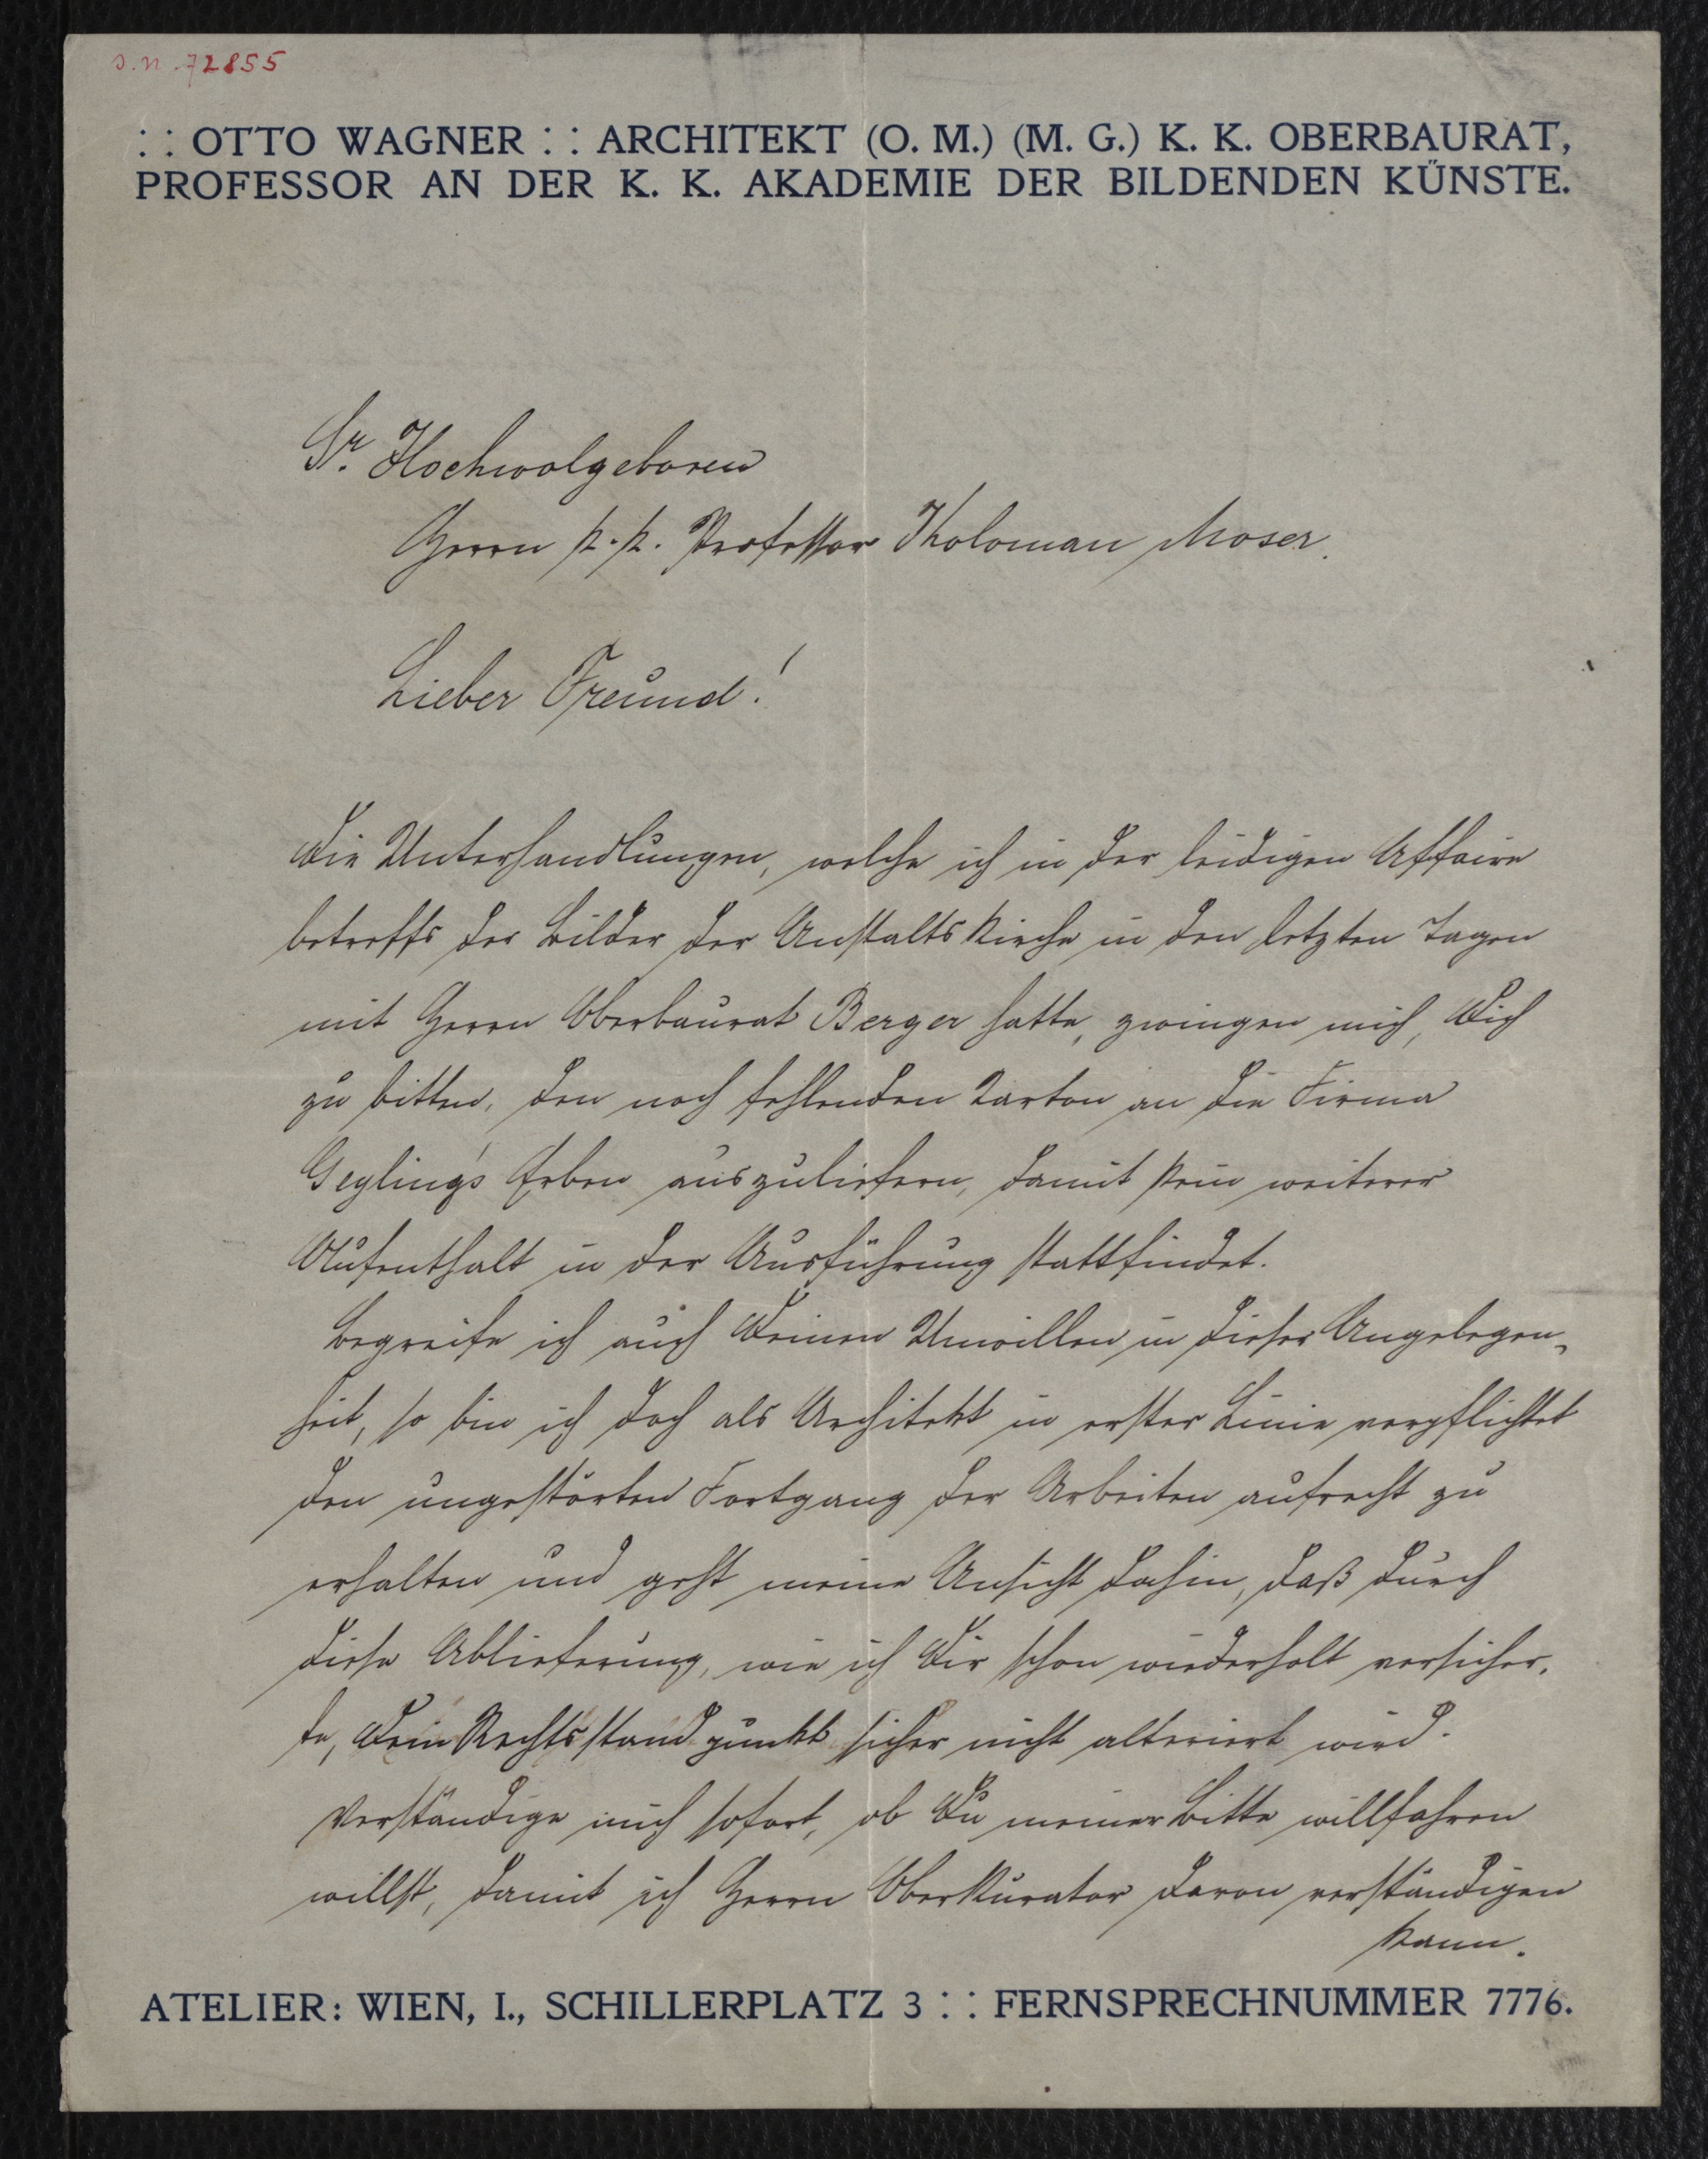 S. N. 72855
: : OTTO WAGNER : : ARCHITEKT (O. M.) (M. G.) K. K. OBERBAURAT,
PROFESSOR AN DER K. K. AKADEMIE DER BILDENDEN KÜNSTE.
Sr. Hochwolgeboren
Herrn k. k. Professor Koloman Moser.
Lieber Freund!
Die Unterhandlungen, welche ich in der leidigen Affaire
betreffs der Bilder der Anstaltskirche in den letzten Tagen
mit Herrn Oberbaurat Berger hatte, zwingen mich, Dich
zu bitten, den noch fehlenden Karton an die Firma
Geyling's Erben auszuliefern, damit kein weiterer
Aufenthalt in der Ausführung stattfindet.
Begreife ich auch Deinen Unwillen in dieser Angelegen-
heit, so bin ich doch als Architekt in erster Linie verpflichtet
den ungestörten Fortgang der Arbeiten aufrecht zu
erhalten und geht meine Ansicht dahin, daß durch
diese Ablieferung, wie ich Dir schon wiederholt versicher-
te, Dein Rechtsstandpunkt sicher nicht alteriert wird.
Verständige mich sofort, ob Du meiner Bitte willfahren
willst, damit ich Herrn Oberkurator davon verständigen
kann.
ATELIER: WIEN, I., SCHILLERPLATZ 3 : : FERNSPRECHNUMMER 7776.